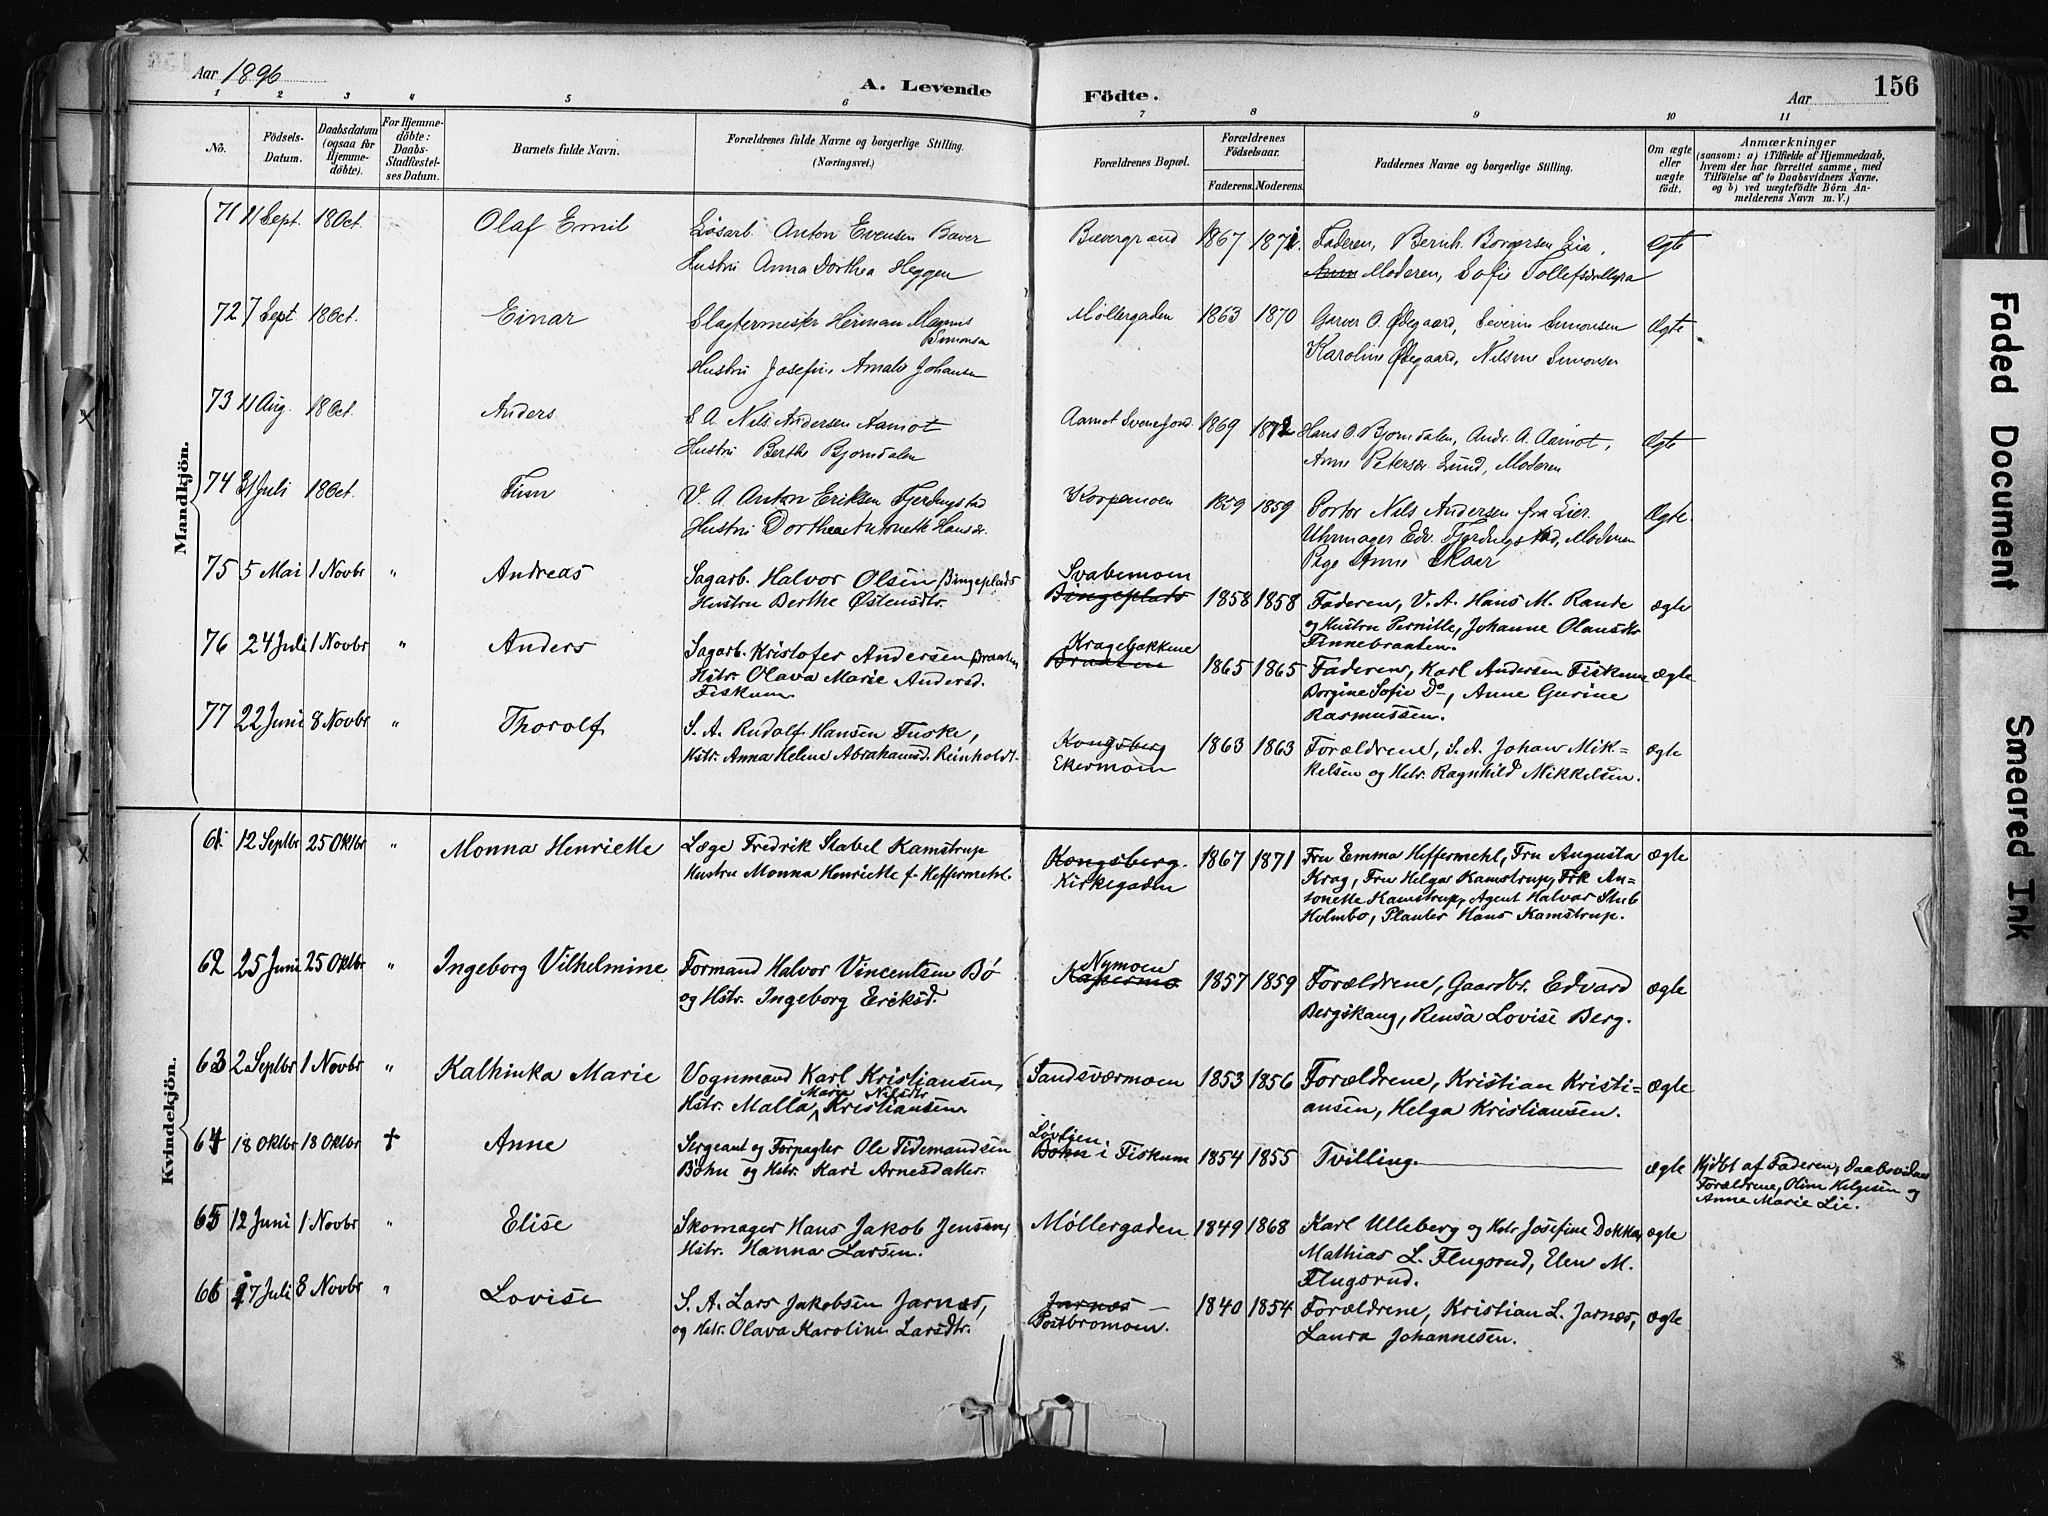 Aar 1896
A. Levende Födte.
Aar
156
1 2 3 4 5 6 7 8 9 10 11
No.
Födsels-Datum.
Daabsdatum (ogsaa for Hjemme-döbte).
For Hjemme-döbte: Daabs-Stadfæstel-ses Datum.
Barnets fulde Navn.
Forældrenes fulde Navne og borgerlige Stilling. (Næringsvei.)
Forældrenes Bopæl.
Forældrenes Födselsaar.
Faderens. Moderens.
Faddernes Navne og borgerlige Stilling.
Om ægte eller uægte födt.
Anmærkninger
(saasom: a) i Tilfælde af Hjemmedaab, hvem der har forrettet samme, med Tilföielse af to Daabsvidners Navne, og b) ved uægtefödte Börn Anmelderens Navn m. V.)
Mandkjön.
71 11 Sept. 18 Oct. Olaf Emil Løsarb. Anton Evensen Bæver Bævergrand 1867 1871. Faderen, Bernh. Borgersen Lia, Ægte
Hustru Anna Dorthea Heggen Moderen, Sofie Tollefsd. Myra
72 7 Sept 18 Oct. Einar Slagtermester Herman Magnus Simonsen Møllergaden 1863 1870 Garver O. Ødegaard, Severin Simonsen Ægte
Hustru Josefine Amalie Johansen Karoline Ødegaard, Nilsine Simonsen
73 11 Aug. 18 Oct. Anders S. A. Nils Andersen Aamot Aamot Svenefjord. 1869 1872 Hans O. Bjørndalen, Andr. A. Aamot, Ægte
Hustru Berthe Bjørndalen Anne Peterson Lund, Moderen
74 31 Juli 18 Oct. Finn V. A. Anton Eriksen Fjerdingstad Korpemoen 1859 1859 Portør Nils Andersen fra Lier. Ægte
Hustru Dorthea Antonette Hansdr. Uhrmager Edv. Fjerdingstad, Moderen
Pige Anne Skaar
75 5 Mai 1 Novbr " Andreas Sagarb. Halvor Olsen Bingeplads Svabemoen Bingeplads 1858 1858 Faderen, V. A. Hans M. Rande ægte
Hustru Berthe Østensdtr. og Hustru Pernille, Johanne Olansdtr
Finnebraaten.
76 24 Juli 1 Novbr " Anders Sagarb. Kristofer Andersen Braaten Kragebakkene Braatene 1865 1865 Faderen, Karl Andersen Fiskum ægte
Hstr. Olava Marie Andersd. Fiskum. Borgine Sofie Do, Anne Gurine
Rasmussen.
77 22 Juni 8 Novbr " Thorolf S. A. Rudolf Hansen Fuske, Kongsberg Ekermoen 1863 1863 Forældrene, S. A. Johan Mik= ægte
Hstr. Anna Helene Abrahamsd. Reinholdt. kelsen og Hstr. Ragnhild Mikkelsen.
Kvindekjön.
61 12 Septbr 25 Oktbr " Monna Henriette Læge Fredrik Stabel Kamstrup Kongsberg. Kirkegaden 1867 1871 Fru Emma Heffermehl, Fru Augusta ægte
Hustru Monna Henriette f. Heffermehl. Krag, Fru Helga Kamstrup, Frk An=
tonette Kamstrup, Agent Halvor Stub
Holmbo, Planter Hans Kamstrup.
62 25 Juni 25 Oktbr " Ingeborg Vilhelmine Formand Halvor Vincentsen Bø Nymoen 1857 1859 Forældrene, Gaardbr. Edvard ægte
og Hstr. Ingeborg Eriksd. Bergskaug, Rensa Lovise Berg.
63 2 Septbr 1 Novbr " Kathinka Marie Vognmand Karl Kristiansen, Sandsværmoen 1853 1856 Forældrene, Kristian Kristi= ægte
Hstr. Malla Maria Nilsdtr Kristiansen. ansen, Helga Kristiansen.
64 18 Oktbr 18 Oktbr + Anne Sergeant og Forpagter Ole Tidemandsen Løvtjen. Bohn i Fiskum 1854 1855 Tvilling. ægte Hjdbt af Faderen, Daabsvidner
Bohn og Hstr. Kari Arnesdatter. Forældrene, Oline Helgesen og
Anne Marie Lie.
65 12 Juni 1 Novbr " Elise Skomager Hans Jakob Jensen, Møllergaden 1849 1868 Karl Ulleberg og Hstr Josefine Dokka, ægte
Hstr. Hanna Larsen. Mathias L. Flugsrud, Elen M.
Flugsrud.
66 17 Juli 8 Novbr " Lovise S. A. Lars Jakobsen Jarnæs, Jarnæs Postbromoen. 1840 1854 Forældrene, Kristian L. Jarnæs, ægte
og Hstr. Olava Karoline Larsdtr. Laura Johannesen.
Faded Document
Smeared Ink